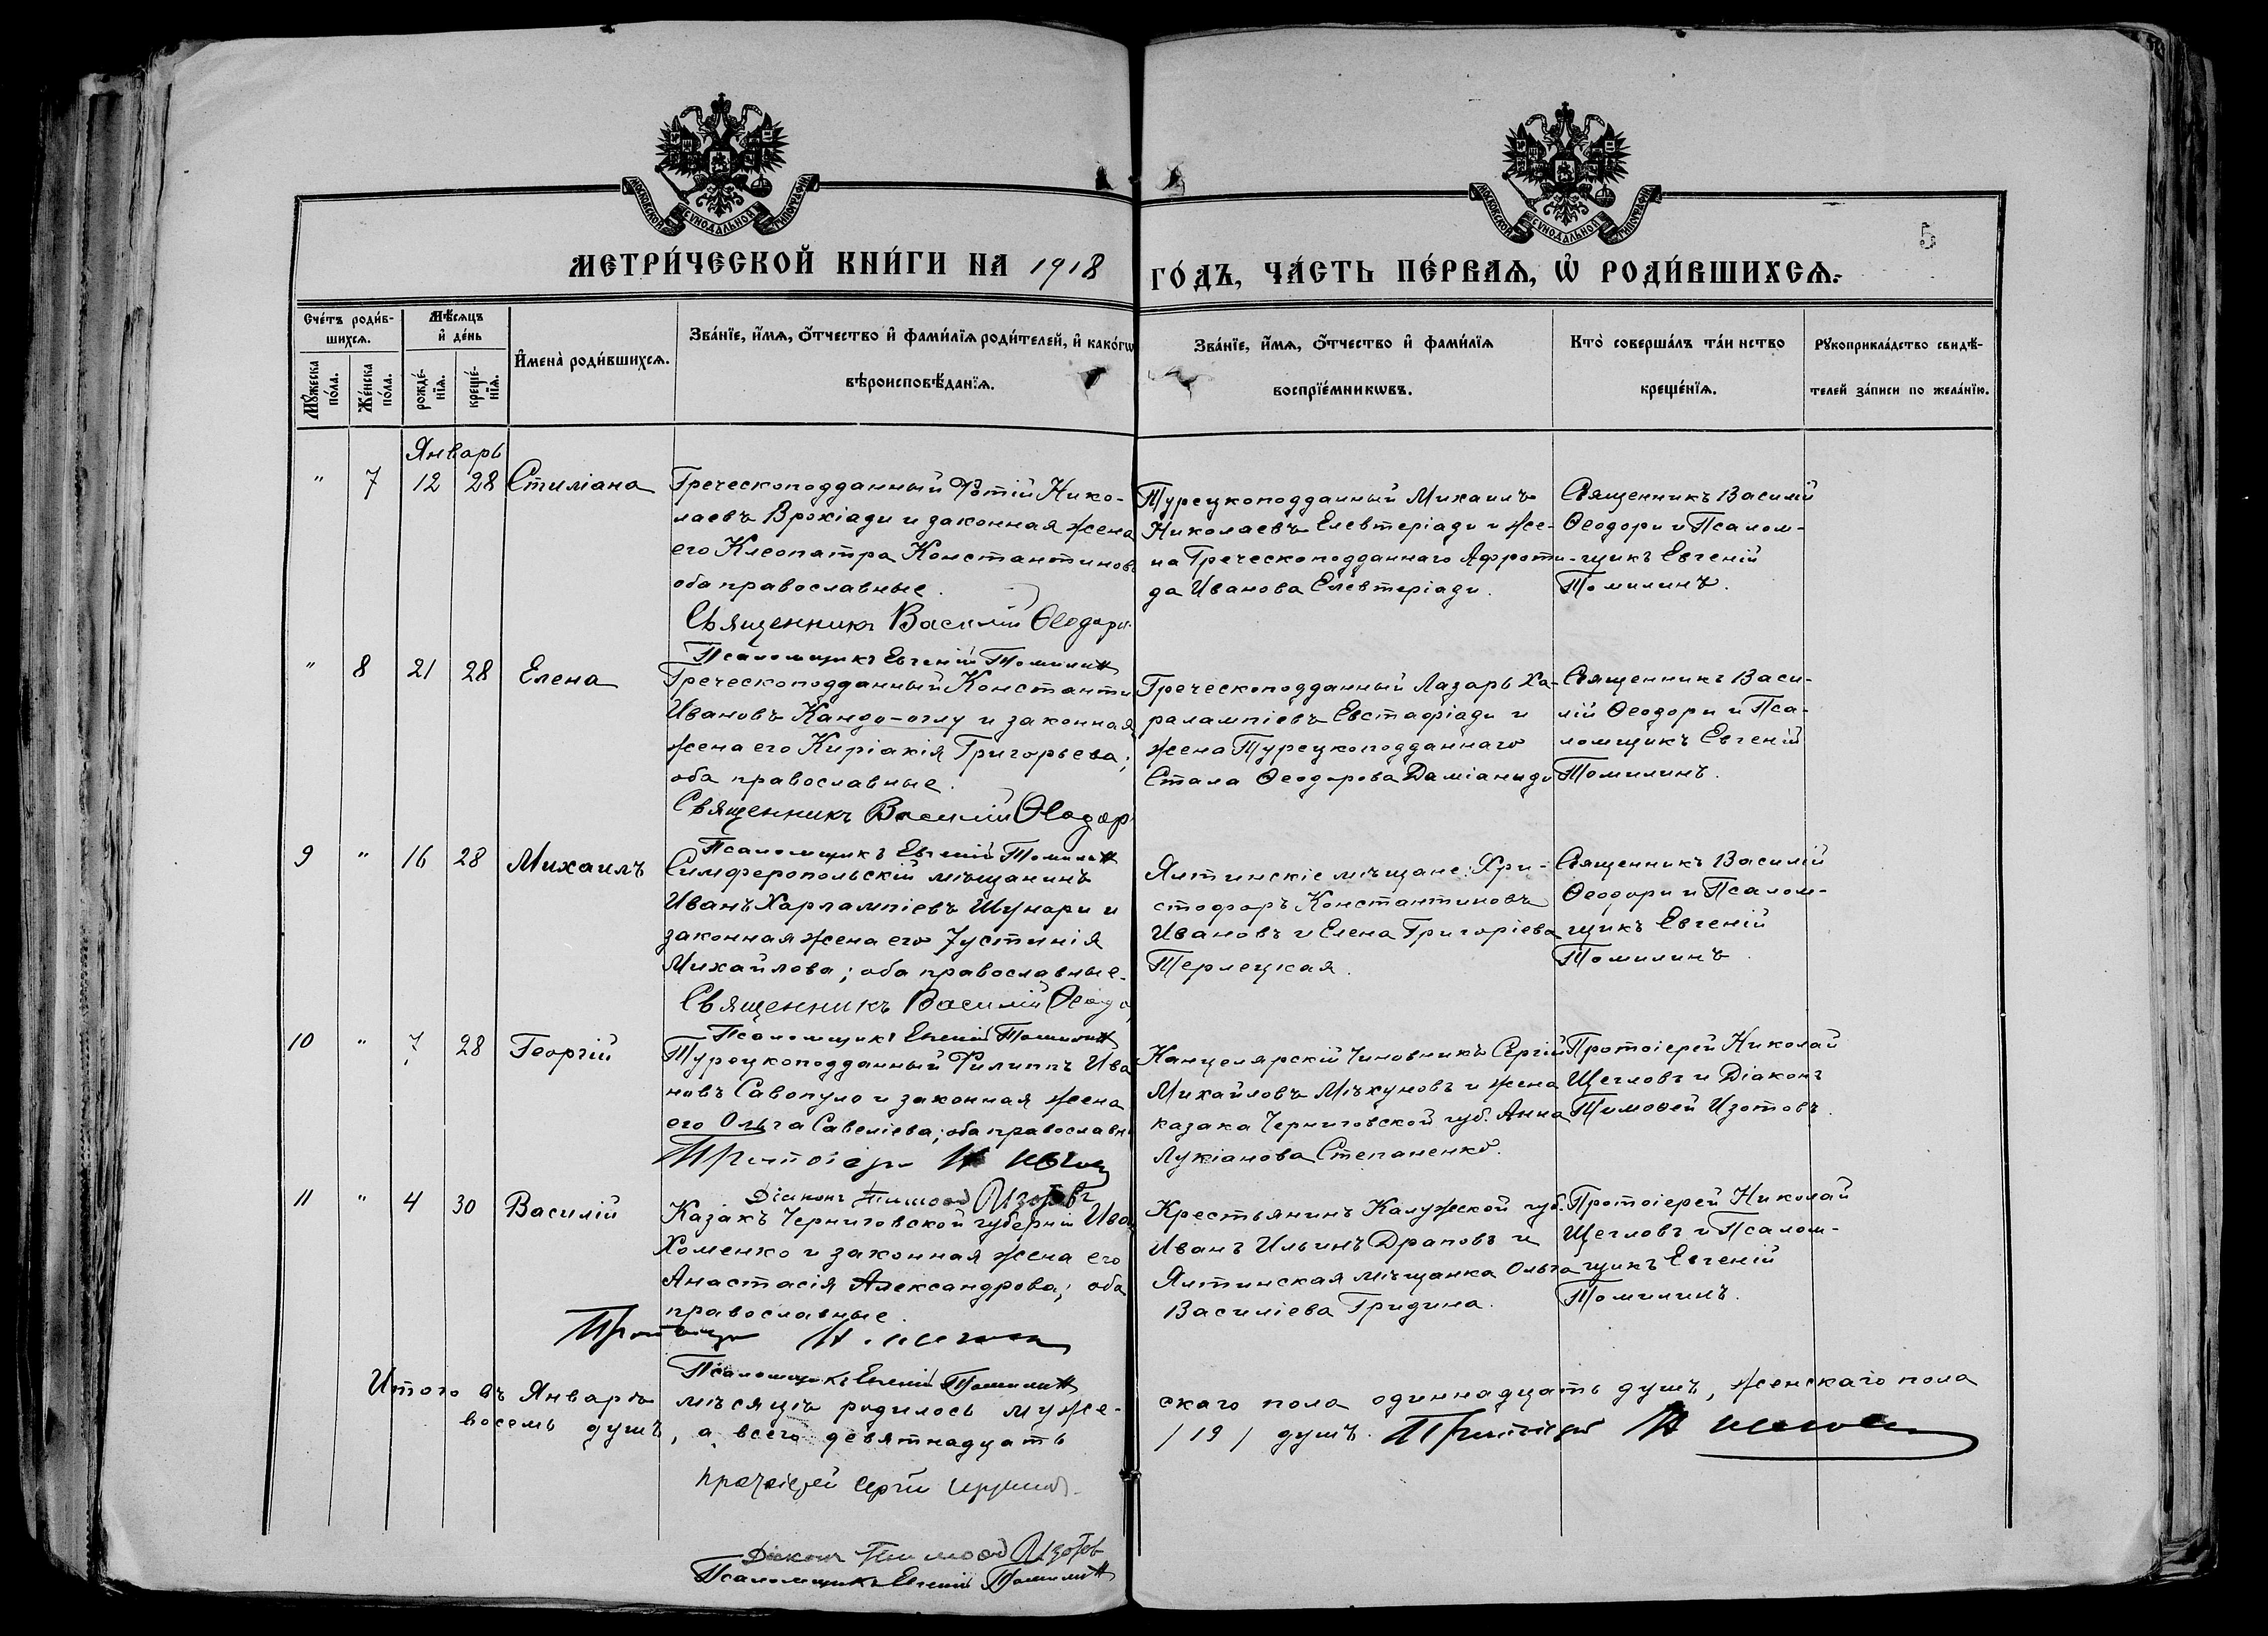 МОСКОВСКОЙ СѴНОДАЛЬНОЙ ТИПОГРАФІИ
МОСКОВСКОЙ СѴНОДАЛЬНОЙ ТИПОГРАФІИ
5
МЕТРИ́ЧЕСКОЙ КНИ́ГИ НА 1918
ГО́ДЪ, ЧА́СТЬ ПЕ́РВАѦ, Ѡ РОДИ́ВШИХСѦ.
Сче́тъ роди́в-
шихсѧ.
Мѣ́сѧцъ
и де́нь
И҆мена̀ роди́вшихсѧ.
Зва́нїе, и҆́мѧ, ѻ҆́тчество и҆ фами́лїѧ роди́телей, и҆ како́гѡ
вѣроисповѣ́данїѧ.
Мꙋ́жеска
по́ла.
Же́нска
по́ла.
рожде́-
нїѧ.
креще́-
нїѧ.
Зва́нїе, и҆́мѧ, ѻ҆́тчество и҆ фами́лїѧ
воспрїе́мникѡвъ.
Кто̀ соверша́лъ та́инство
креще́нїѧ.
Рꙋкоприкла́дство свидѣ́-
телей за́писи по жела́нїю.
Январь
" 7 12 28 Стиліана
Греческоподданный Фотій Нико-
лаевъ Врохіади и законная жена
его Клеопатра Константинов
оба православные.
Священникъ Василій Ѳеодори
Псаломщикъ Евгеній Томилин
Турецкоподданный Михаилъ
Николаевъ Елевтеріади и же-
на Греческоподданнаго Афроти-
да Иванова Елевтеріади.
Священникъ Василій
Ѳеодори и Псалом-
щикъ Евгеній
Томилинъ.
" 8 21 28 Елена
Греческоподданный Константи
Ивановъ Кандо-оглу и законная
жена его Киріакія Григорьева;
оба православные.
Священникъ Василій Ѳеодор
Псаломщикъ Евгеній Томилин
Греческоподданный Лазарь Ха-
ралампіевъ Евстафіади и
жена Турецкоподданнаго
Стала Ѳеодорова Даміаниди
Священникъ Васи-
лій Ѳеодори и Пса-
ломщикъ Евгеній
Томилинъ.
9 " 16 28 Михаилъ
Симферопольскій мѣщанинъ
Иванъ Харлампіевъ Шунари и
законная жена его Іустинія
Михайлова; оба православные.
Священникъ Василій Ѳеодо
Псаломщикъ Евгеній Томилин
Ялтинскіе мѣщане: Хри-
стофоръ Константиновъ
Ивановъ и Елена Григоріева
Терлецкая.
Священникъ Василій
Ѳеодори и Псалом-
щикъ Евгеній
Томилинъ.
10 " 7 28 Георгій
Турецкоподданный Филиппъ Ива
новъ Савопуло и законная жена
его Ольга Савеліева; оба православн
Протоіерей Н Щегло
Діаконъ Тимоѳей Изотовъ
Канцелярскій Чиновникъ Сергій
Михайловъ Мѣкуновъ и жена
казака Черниговской губ. Анна
Лукіанова Степаненко.
Протоіерей Николай
Щегловъ и Діаконъ
Тимоѳей Изотовъ.
11 " 4 30 Василій
Казакъ Черниговской губерніи Ива
Хоменко и законная жена его
Анастасія Александрова; оба
православные.
Протоіерей Н. Щеглов
Псаломщикъ Евгеній Томилин
Крестьянинъ Калужской губ.
Иванъ Ильинъ Драповъ и
Ялтинская мѣщанка Ольга
Василіева Гридина.
Протоіерей Николай
Щегловъ и Псалом-
щикъ Евгеній
Томилинъ.
Итого въ Январѣ мѣсяцѣ родилось муже-
скаго пола одиннадцать душъ, женскаго пола
восемь душъ, а всего девятнадцать
/19/ душъ. Протоіерей Н Щеглов
Протоіерей Сергій
Діаконъ Тимоѳей Изотов
Псаломщикъ Евгеній Томилин